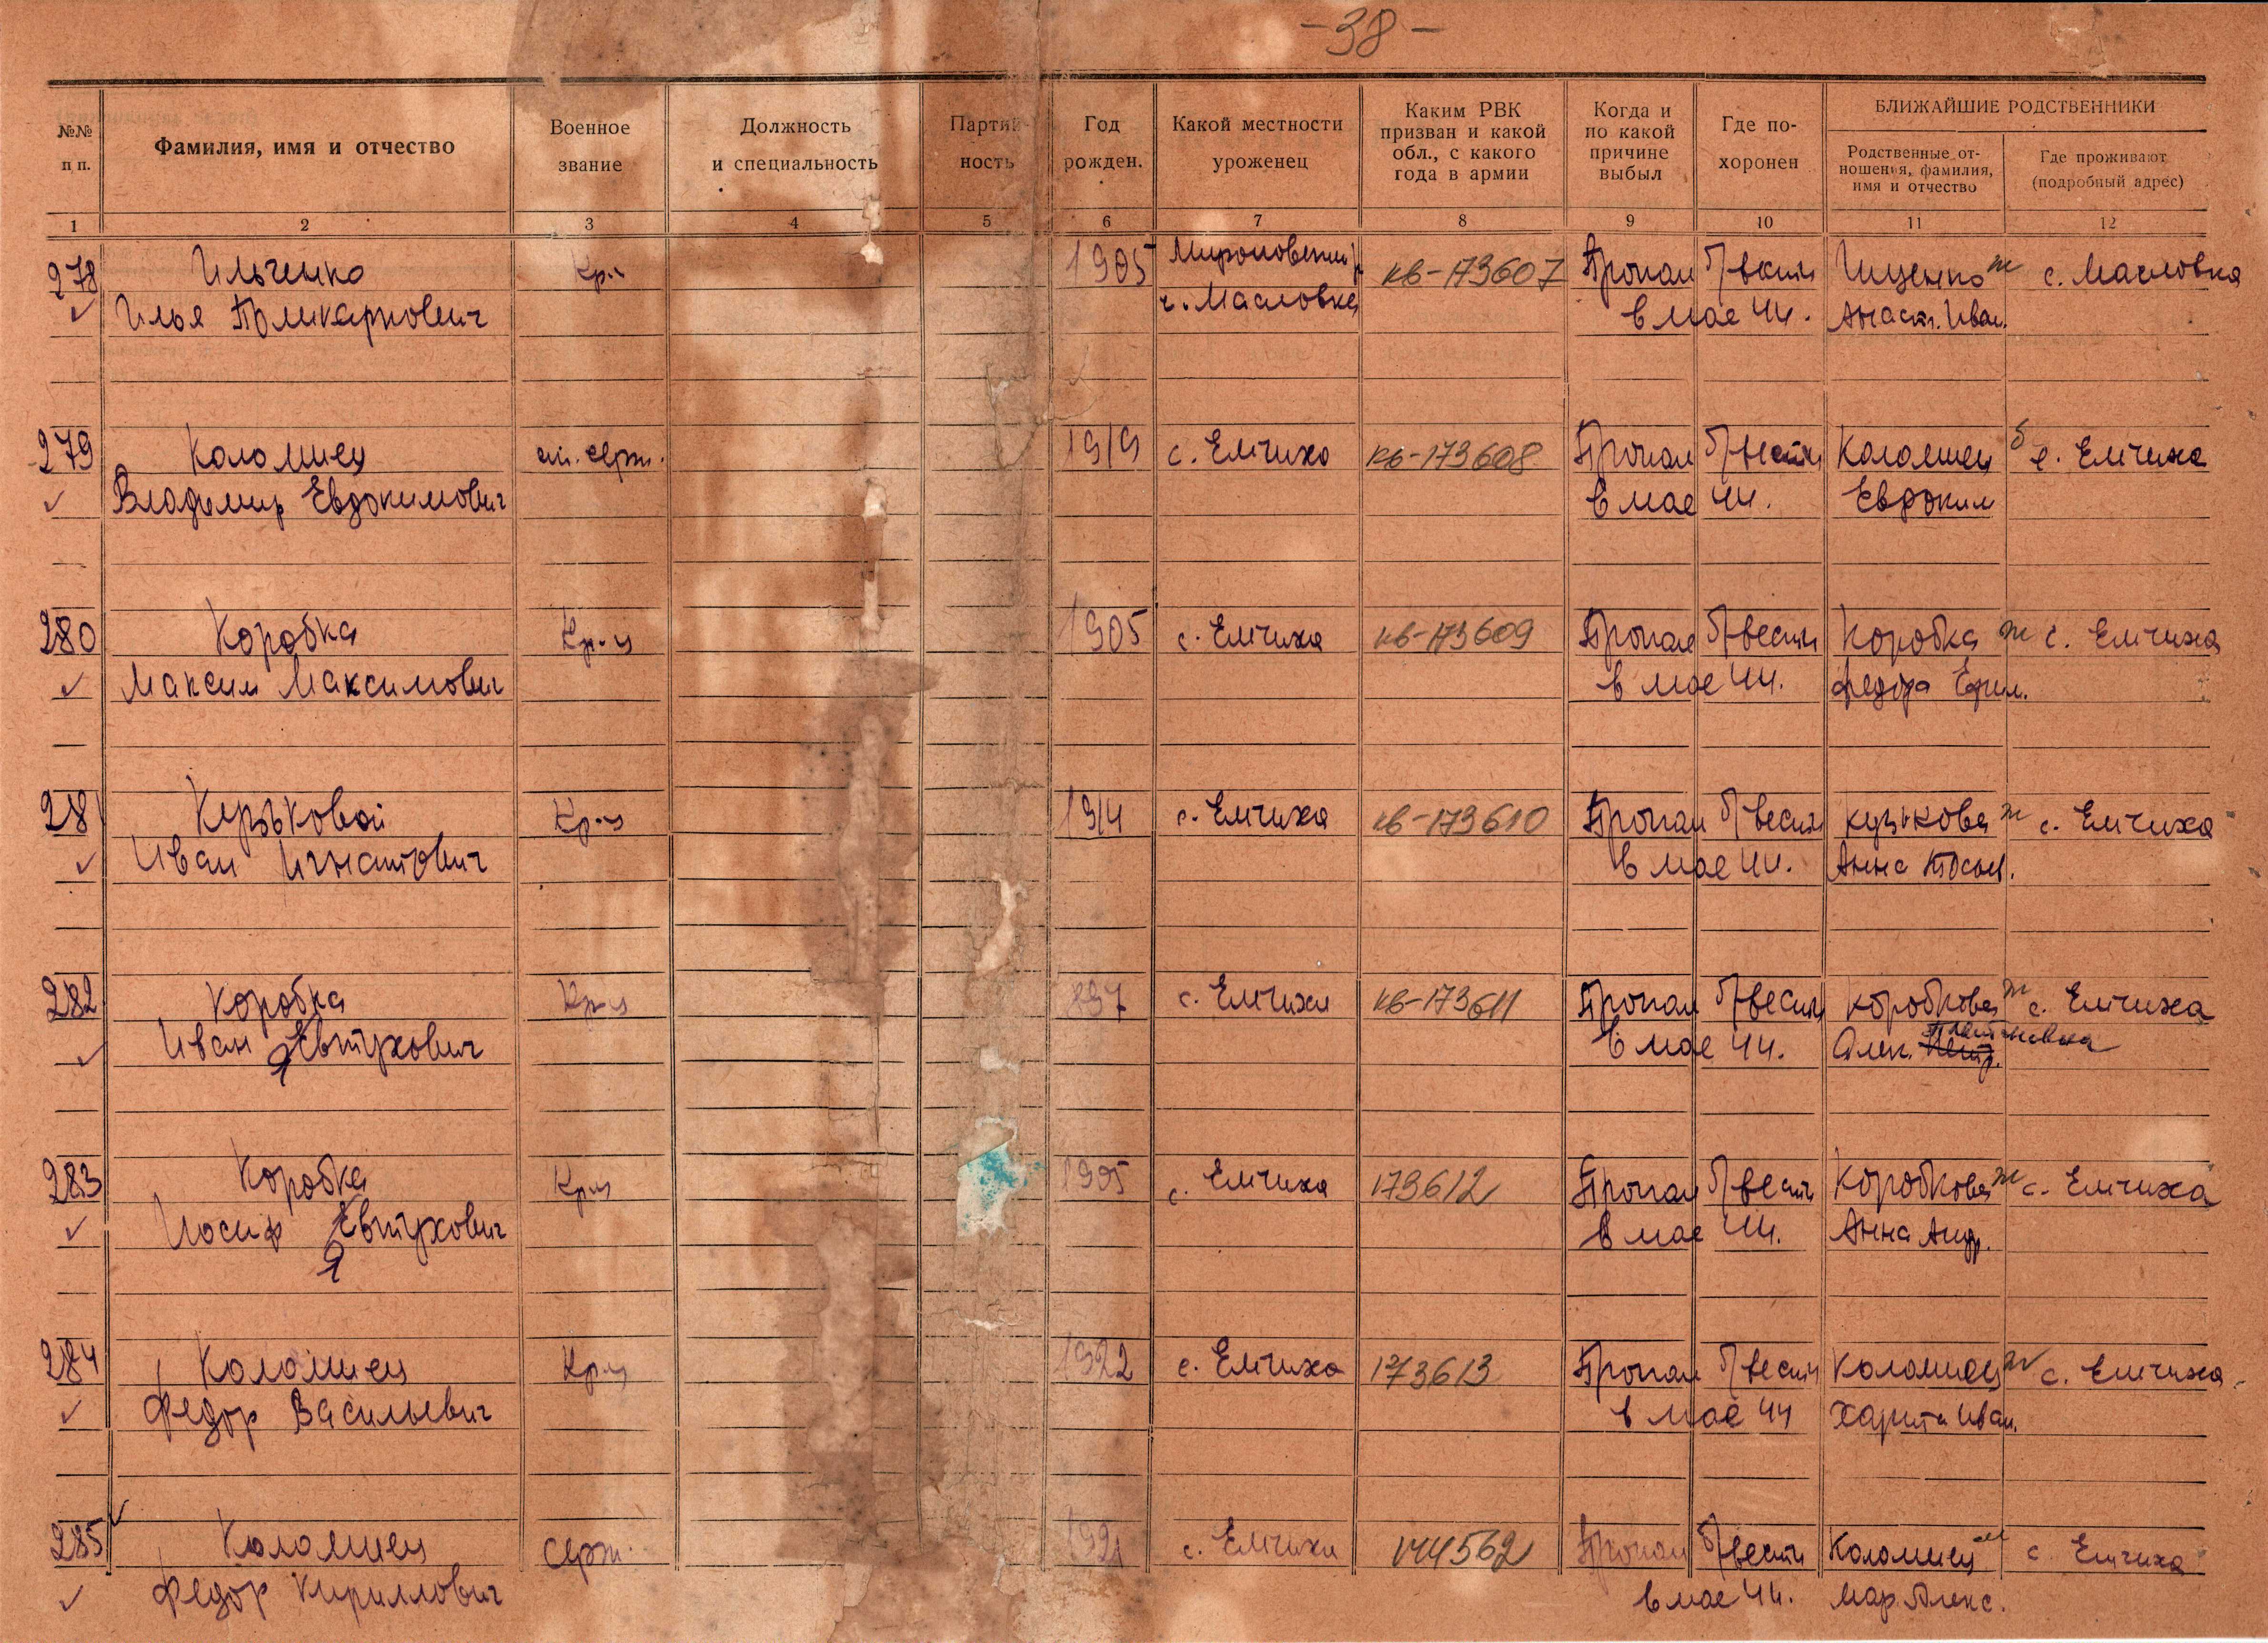 -38-
№№ п п.
Фамилия, имя и отчество
Военное звание
Должность и специальность
Партий- ность
Год рожден.
Какой местности уроженец
Каким РВК призван и какой обл., с какого года в армии
Когда и по какой причине выбыл
Где по- хоронен
БЛИЖАЙШИЕ РОДСТВЕННИКИ
Родственные от- ношения, фамилия, имя и отчество
Где проживают (подробный адрес)
1 2 3 4 5 6 7 8 9 10 11 12
278 Ильченко Кр-ц 1905 Мироновский р кв-173607 Пропал б/вести Ищенко ж с. Масловка
Илья Поликарпович с. Масловка в мае 44. Анаст. Иван.
279 Коломиец мл. серж. 1919 с. Емчиха кв-173608 Пропал б/вести Коломиец с. Емчиха
Владимир Евдокимович в мае 44. Евдоким
280 Коробка Кр-ц 1905 с. Емчиха кв-173609 Пропал б/вести Коробка ж с. Емчиха
Максим Максимович в мае 44. Федора Ефим.
281 Кр-ц 1914 с. Емчиха кв-173610 Пропал б/вести ж с. Емчиха
Иван Игнатович в мае 44. Анна
282 Коробка Кр-ц 897 с. Емчихи кв-173611 Пропал б/вести Коробкова ж с. Емчиха
Иван Явтухович в мае 44. Олек.
283 Коробка Кр-ц 1905 с. Емчиха 173612 Пропал б/вести Коробкова ж с. Емчиха
Иосиф Явтухович в мае 44. Анна Андр.
284 Коломиец Кр-ц 1922 с. Емчиха 173613 Пропал б/вести Коломиец с. Емчиха
Федор Васильевич в мае 44 Харит. Иван.
285 Коломиец серж. 1921 с. Емчихи 144562 Пропал б/вести Коломиец м с Емчиха
Федор Кириллович в мае 44. Мар. Алекс.